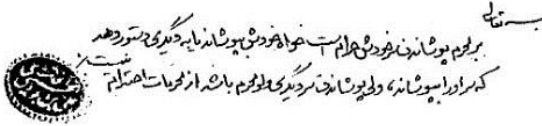 بسمه تعالی
بر محرم پوشاندن سر خودش حرام است خواه خودش بپوشاند یا به دیگری دستور دهد
که سر او را بپوشاند، ولی پوشاندن سر دیگری ولو محرم باشد از محرمات احرام نیست